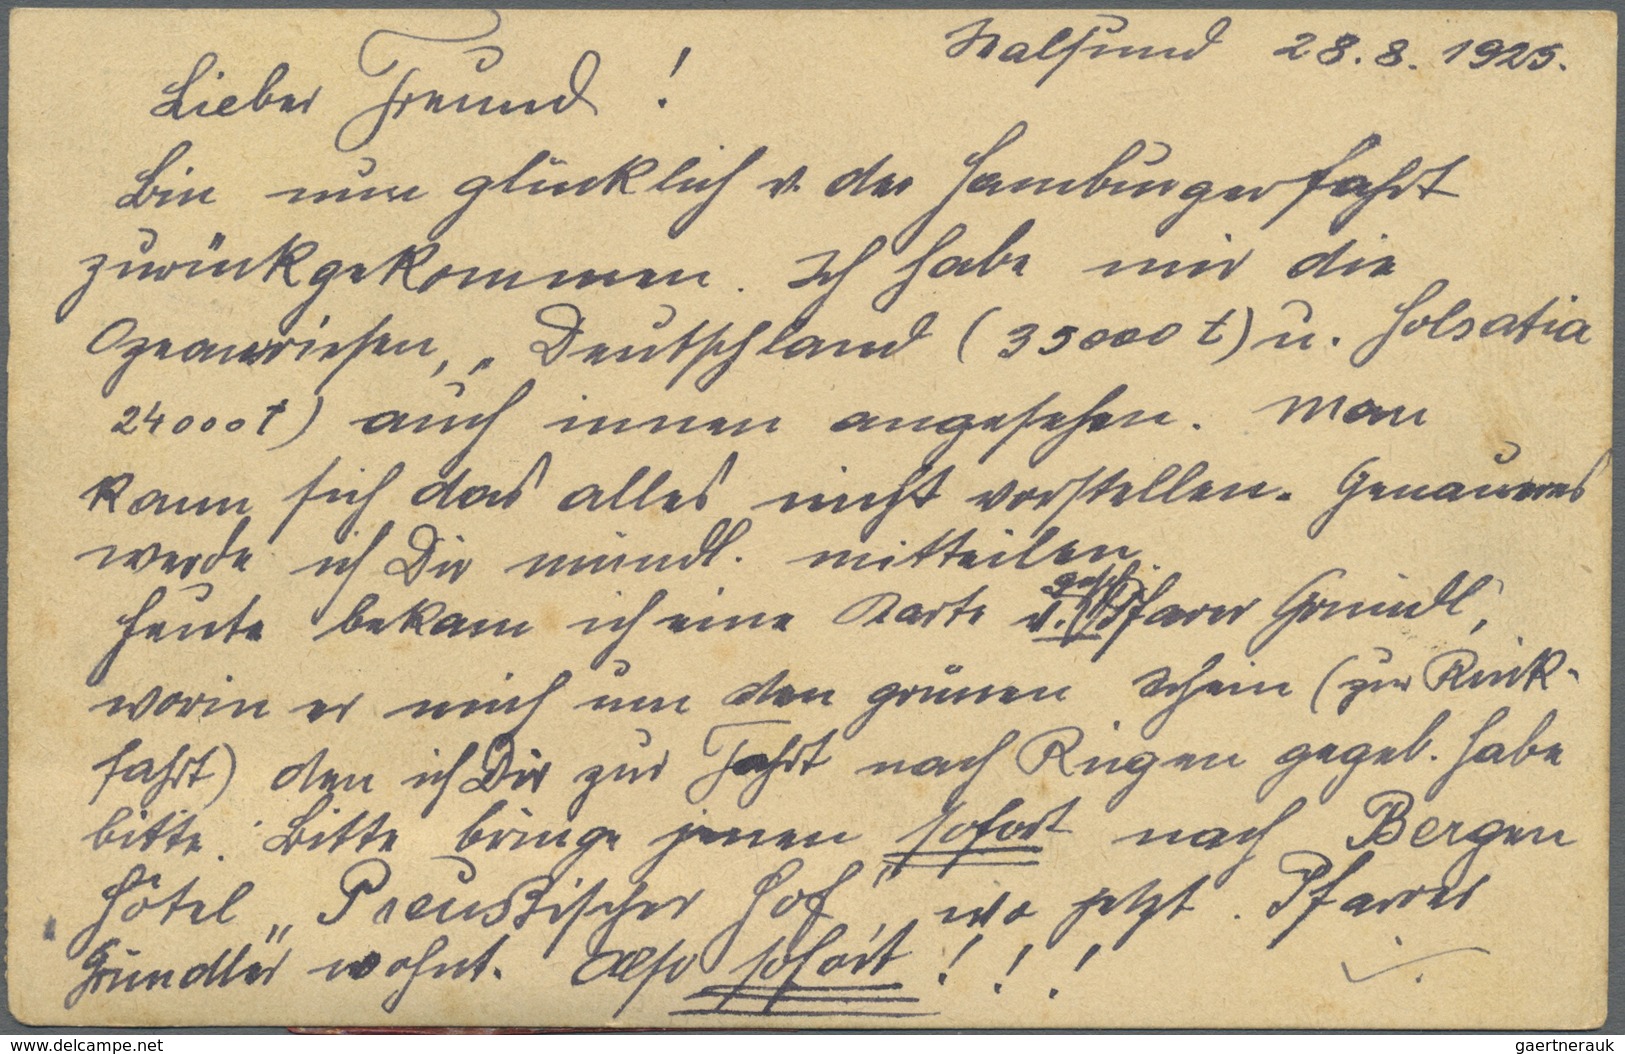 Stralsund 28.8.1925.
Lieber Freund!
Bin nun glücklich v. der Hamburgerfahrt
zurückgekommen. Ich habe mir die
Ozeanriesen, „Deutschland (35000 t) u. Holsatia
24000 t) auch innen angesehen. Man
kann sich das alles nicht vorstellen. Genaueres
werde ich Dir mündl. mitteilen.
Heute bekam ich eine Karte v. Pfarrer Gründl,
worin er mich um den grünen Schein (zur Rück-
fahrt) den ich Dir zur Fahrt nach Rügen gegeb. habe
bitte. Bitte bringe jenen sofort nach Bergen
Hôtel „Preussischer Hof", wo jetzt Pfarrer
Gründler wohnt. Also sofort!!!
www.delcampe.net
gaertnerauk